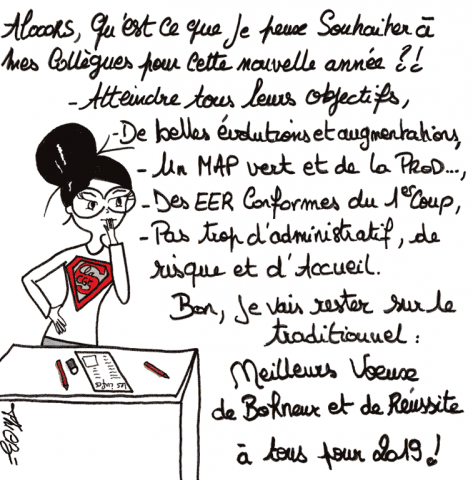 Alooors, Qu'est ce que Je peux Souhaiter à
mes Collègues pour cette nouvelle année ?!!
- Atteindre tous leurs objectifs,
- De belles évolutions et augmentations,
- Un MAP vert et de la PROD...,
- Des EER Conformes du 1er Coup,
- Pas trop d'administratif, de
risque et d'Accueil.
Bon, Je vais rester sur le
traditionnel :
Meilleurs Voeux
de Bonheur et de Réussite
à tous pour 2019 !
Les infos